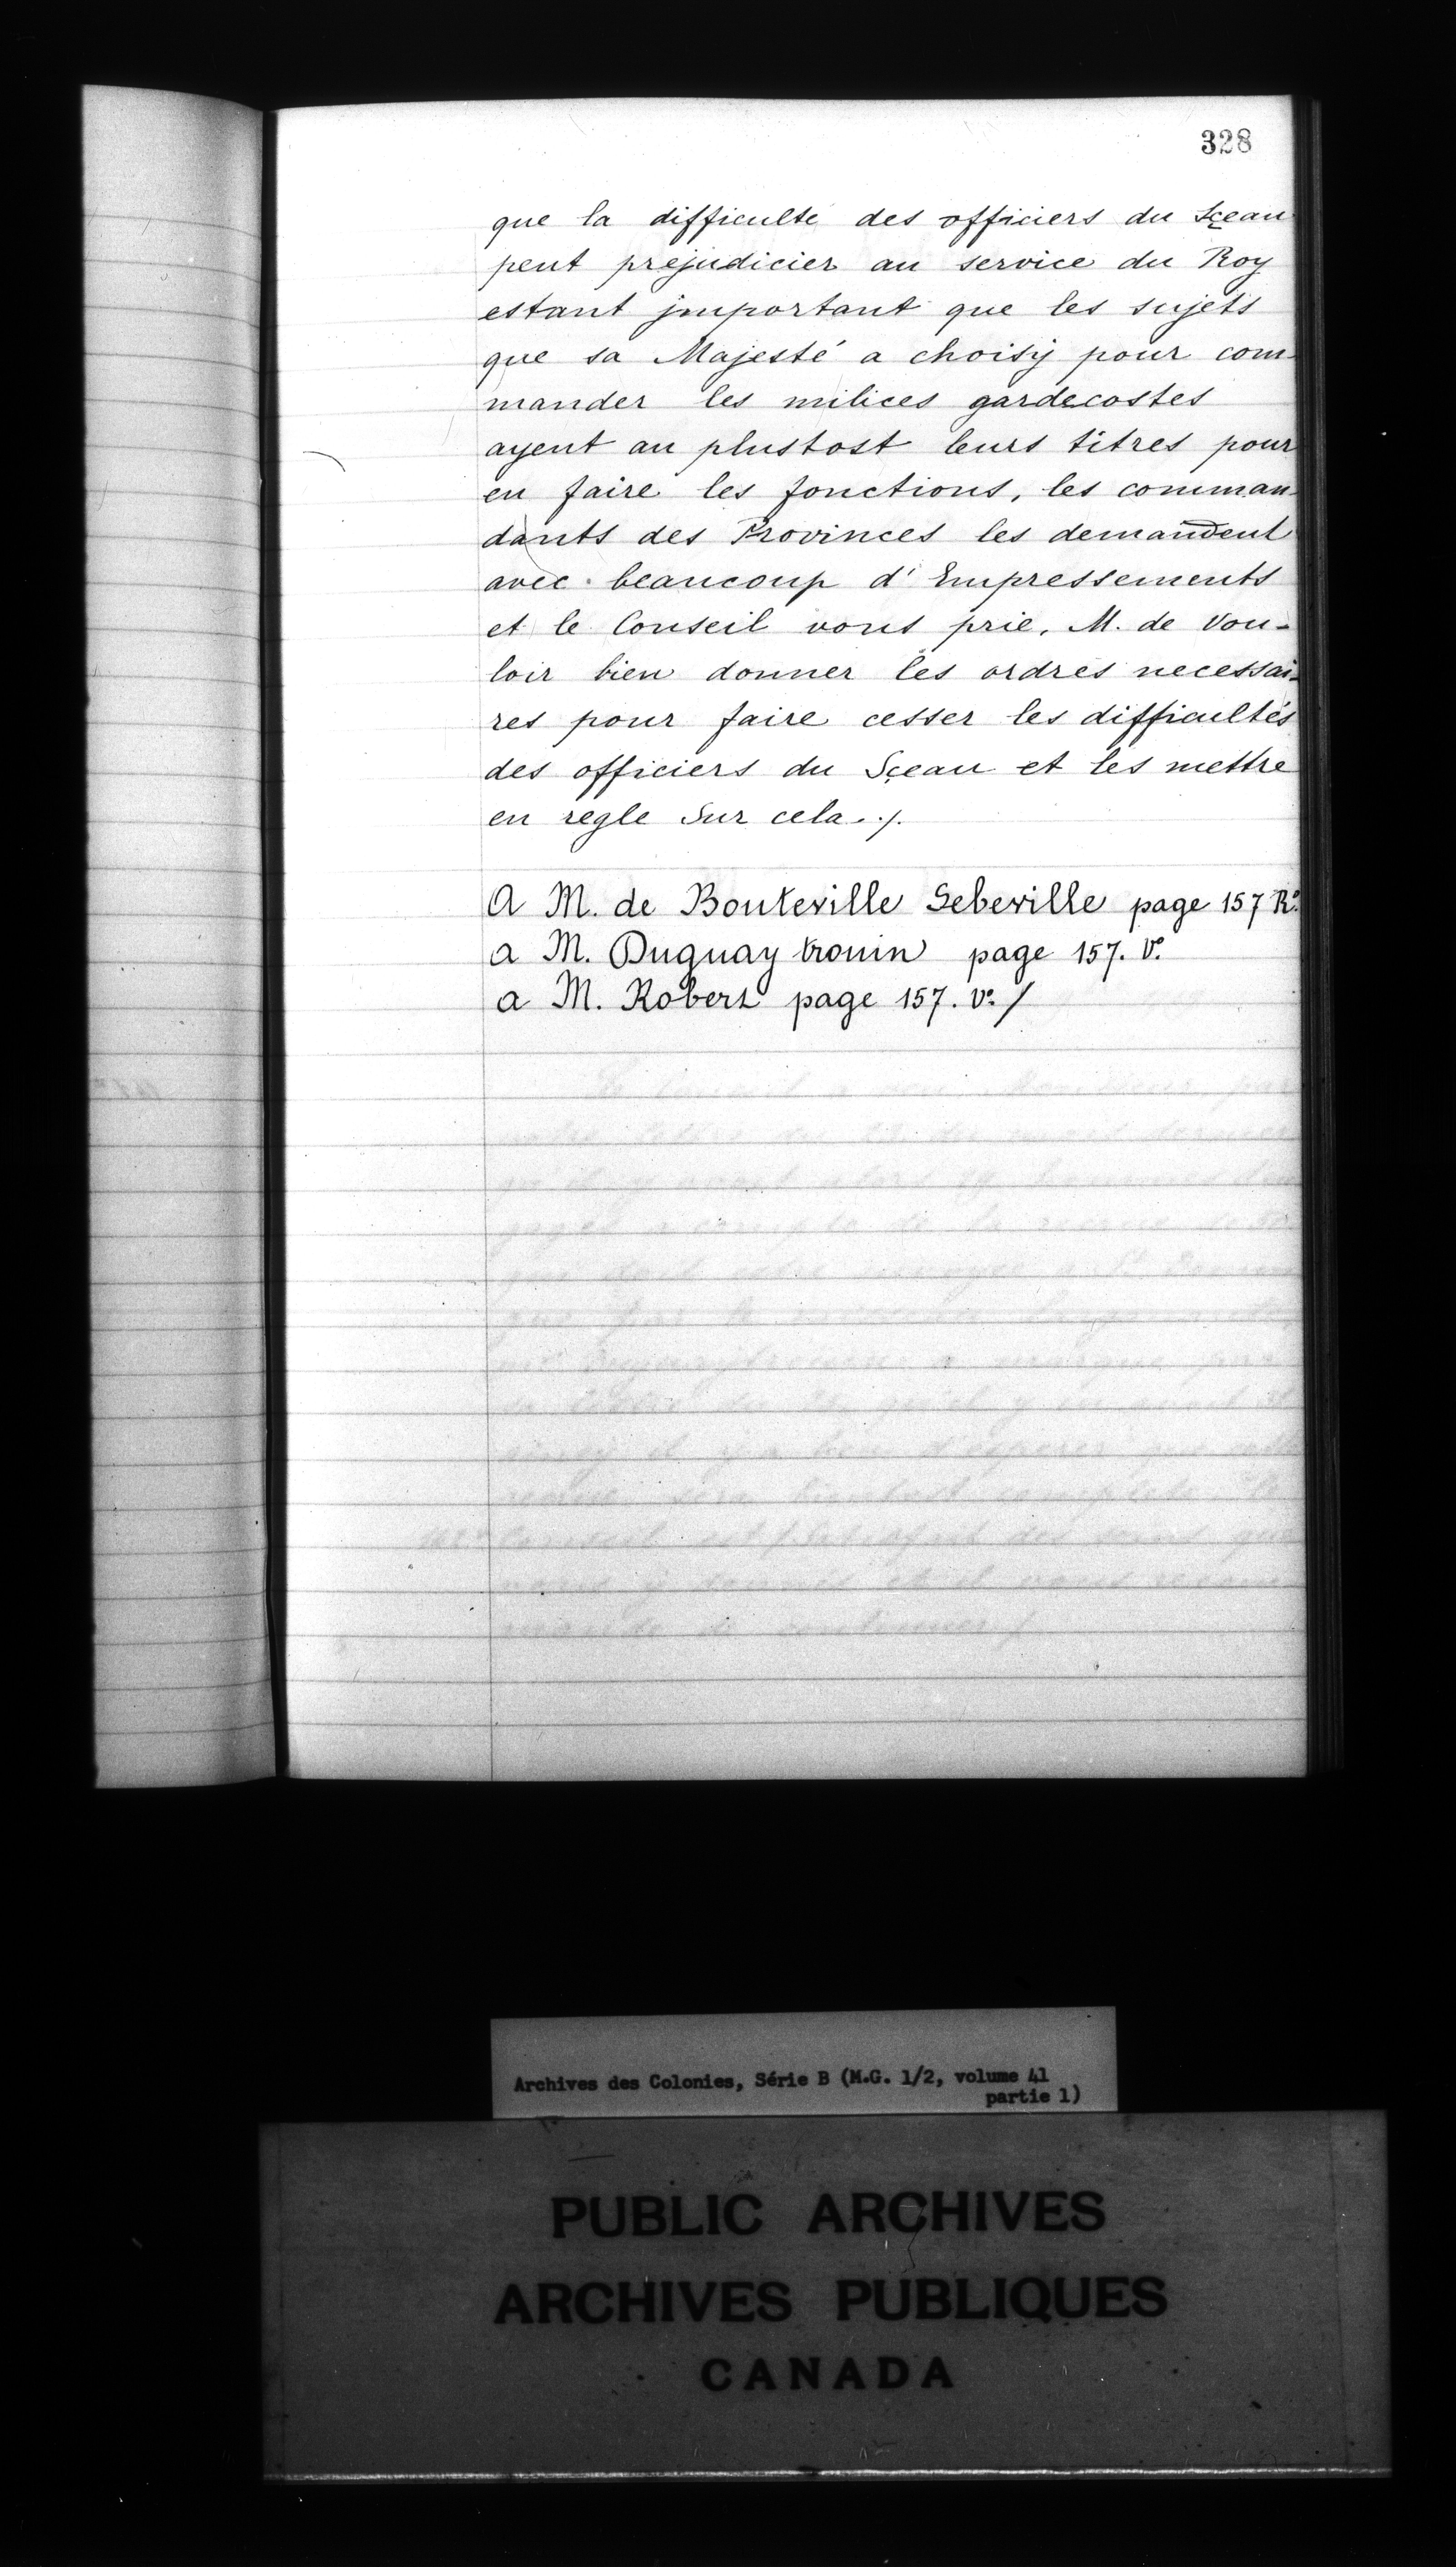 328
que la difficulté des officiers du Sçeau
peut prejudicier au service du Roy
estant jmportant que les sujets
que sa Majesté a choisy pour com-
mander les milices gardecostes
ayent au plustost leurs titres pour
en faire les fonctions, les comman-
dants des Provinces les demandent
avec beaucoup d'Empressements
et le Conseil vous prie, M. de vou-
loir bien donner les ordres necessai-
res pour faire cesser les difficultés
des officiers du Sçeau et les mettre
en regle Sur cela ./.
A M. de Bouteville Sebeville page 157 Rº.
a M. Duguay trouin page 157. Vº.
a M. Robert page 157. vº. /
Archives des Colonies, Série B (M.G. 1/2, volume 41
partie 1)
PUBLIC ARCHIVES
ARCHIVES PUBLIQUES
CANADA